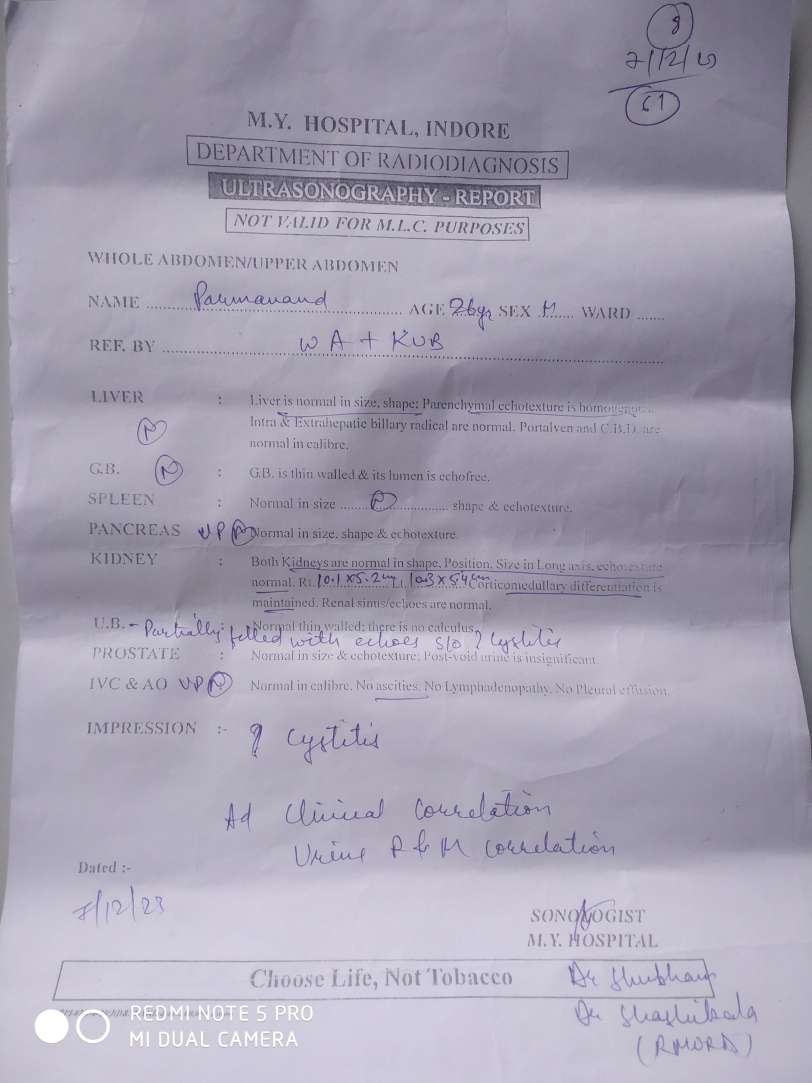 8
7/12/23
61
M.Y. HOSPITAL, INDORE
DEPARTMENT OF RADIODIAGNOSIS
ULTRASONOGRAPHY - REPORT
NOT VALID FOR M.L.C. PURPOSES
WHOLE ABDOMEN/UPPER ABDOMEN
NAME .......... Parmanand .......... AGE 26yr SEX M ...... WARD .......
REF. BY .......... W A + KUB ..........
LIVER : Liver is normal in size, shape; Parenchymal echotexture is homogenous.
Intra & Extrahepatic billary radical are normal. Portalven and C.B.D. are
N
normal in calibre.
G.B. N : G.B. is thin walled & its lumen is echofree.
SPLEEN : Normal in size ...... N .......... shape & echotexture.
PANCREAS VP N Normal in size, shape & echotexture.
KIDNEY : Both Kidneys are normal in shape. Position. Size in Long axis, echotexture
normal. Rt. 10.1 x 5.2cm Lt. 10.3 x 5.4cm Corticomedullary differentiation is
maintained. Renal sinus/echoes are normal.
U.B. : Normal thin walled; there is no calculus.
- Partially filled with echoes s/o ? cystitis
PROSTATE : Normal in size & echotexture; Post-void urine is insignificant.
IVC & AO VP N Normal in calibre. No ascities. No Lymphadenopathy. No Pleural effusion.
IMPRESSION :- ? Cystitis
Ad Clinical Correlation
Urine R & M correlation
Dated :-
7/12/23
SONOLOGIST
M.Y. HOSPITAL
Choose Life, Not Tobacco
Dr Shubham
Dr Shashikala
REDMI NOTE 5 PRO
MI DUAL CAMERA